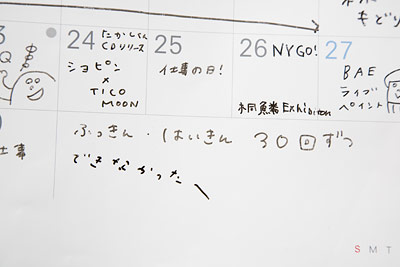 もどり
24 たかしくん
CDリリース
ショピン
×
TICO
MOON
25
仕事の日!
26 NYGO!
Exhibition
27
BAE
ライブ
ペイント
仕事
ふっきん・はいきん 30回ずつ
できなかった
S M T